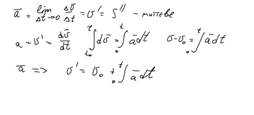 a̅ = lim Δt→0 Δv̅/Δt = v̅' = S'' –
a = v' = dv̅/dt ∫dv̅ = ∫₀ᵗ a̅dt v-v₀ = ∫₀ᵗ a̅dt
a̅ => v' = v₀ + ∫₀ᵗ a̅dt